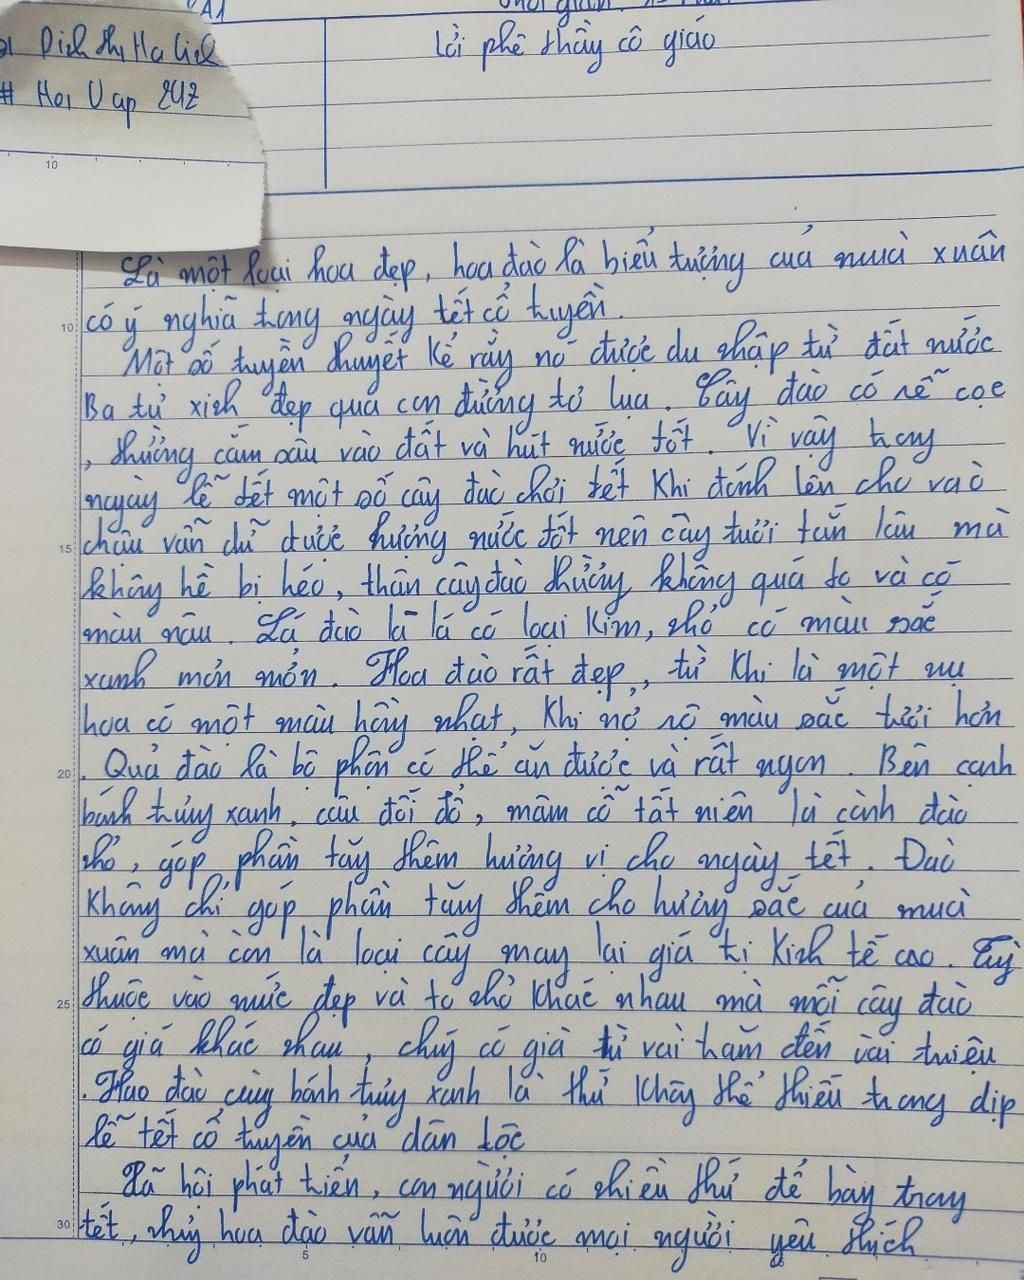 A1
Lời phê thầy cô giáo
10
Là một loại hoa đẹp, hoa đào là biểu tượng của muà xuân
10 có ý nghĩa tong ngày tết cổ tuyền.
Một số tuyền thuyết kể rằy nó được du nhập từ đất nước
Ba tư xinh đẹp qua con đường tơ lụa. Cây đào có rễ cọc
, thường cắm sâu vào đất và hút nước tốt. Vì vậy trong
ngày lễ tết một số cây đào chơi tết khi đánh lên cho vào
15 chậu vẫn dữ được lượng nước tốt nên cây tươi tắn lâu mà
không hề bị héo, thân cây đào thường không quá to và có
màu nâu. Lá đào là lá có loại kim, nhỏ có màu sắc
xanh mơn mởn. Hoa đào rất đẹp, từ khi là một nụ
hoa có một màu hồng nhạt, khi nở rộ màu sắc tươi hơn
20 . Quả đào là bộ phận có thể ăn được và rất ngon. Bên cạnh
bánh trưng xanh, câu đối đỏ, mâm cỗ tất niên là cành đào
nhỏ, góp phần tăng thêm hương vị cho ngày tết. Đào
không chỉ góp phần tăng thêm cho hương sắc của muà
xuân mà còn là loại cây mang lại giá tị kinh tế cao. Tuỳ
25 thuộc vào mức đẹp và to nhỏ khác nhau mà mỗi cây đào
có giá khác nhau, chúng có giá từ vài trăm đến vài triệu
. Hao đào cùng bánh trưng xanh là thứ không thể thiếu trong dịp
lễ tết cổ tuyền của dân tộc
Xã hội phát tiển, con người có nhiều thứ để bày trong
30 tết, nhưng hoa đào vẫn luôn được mọi người yêu thích
5 10